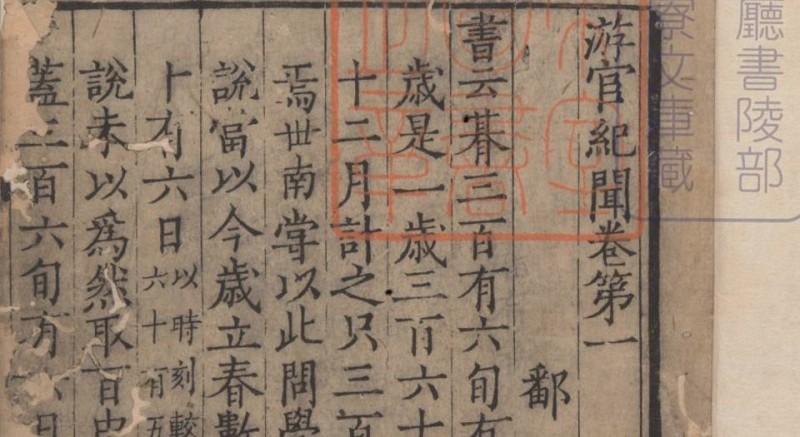 游宦紀聞卷第一
鄱
書云朞三百有六旬有
歲是一歲三百六十
十二月計之只三百
焉世南嘗以此問學
說當以今歲立春數
卜有六日以時刻較六十有五
說未以爲然取百中
蓋三百六旬有六日
廳書陵部
寮文庫藏